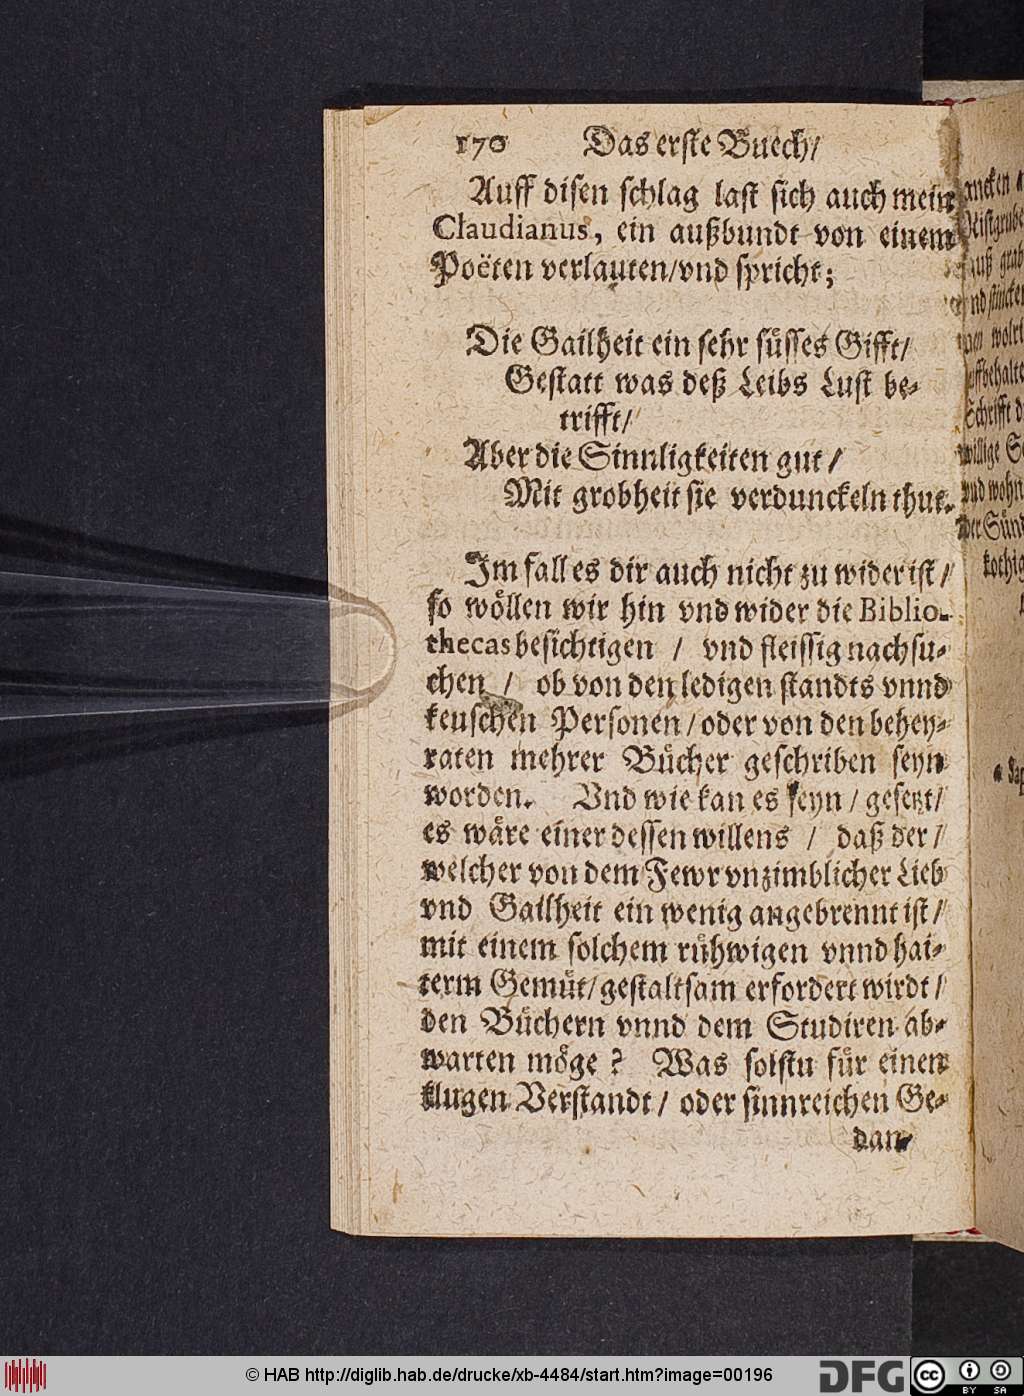 170 Das erste Buech/
Auff disen schlag last sich auch mein
Claudianus, ein außbundt von einem
Poëten verlauten/vnd spricht;
Die Gailheit ein sehr süsses Gifft/
Gestatt was deß Leibs Lust be-
trifft/
Aber die Sinnligkeiten gut/
Mit grobheit sie verdunckeln thut.
Im fall es dir auch nicht zu wider ist/
so wöllen wir hin vnd wider die Biblio-
thecas besichtigen / vnd fleissig nachsu-
chen / ob von den ledigen standts vnnd
keuschen Personen/oder von den behey-
raten mehrer Bücher geschriben seyn
worden. Vnd wie kan es seyn/gesetzt/
es wäre einer dessen willens / daß der/
welcher von dem Fewr vnzimblicher Lieb
vnd Gailheit ein wenig angebrennt ist/
mit einem solchem rühwigen vnnd hai-
term Gemüt/gestaltsam erfordert wirdt/
den Büchern vnnd dem Studiren ab-
warten möge? Was solstu für einen
klugen Verstandt/ oder sinnreichen Ge-
dan-
ancken
nd stincke
wolrie
Schrifft d
willige
vnd wohn
der Sünd
kothig
© HAB http://diglib.hab.de/drucke/xb-4484/start.htm?image=00196
DFG
cc BY SA